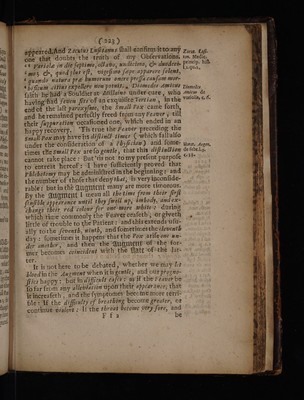 ( 223 )
appeared. And Zacutus Lusitanus shall confirm it to any
one that doubts the truth of my Observations.
Variola in die septimo, octavo, undecimo, & duodeci-
mo: &, quod plus est, vigesimo sæpe apparere solent,
quando natura præ humorum onere pressa confusum mor-
bosicum citius expellere non potuit. Diomedes Amicus
saith he had a Souldier at Millaine under cure, who
having had seven fits of an exquisite Tertian, in the
end of the last paroxysm, the Small Pox came forth,
and he remained perfectly freed from any Feaver; till
their suppuration occasioned one, which ended in an
happy recovery. 'Tis true the Feaver preceding the
Small Pox may have its distinct times (which fals also
under the consideration of a Physician) and some-
times the Small Pox are so gentle, that this distinction
cannot take place: But 'tis not to my present purpose
to entreat hereof: I have sufficiently proved that
Phlebotomy may be administred in the beginning: and
the number of those that deny that, is very inconside-
rable: but in the Augment many are more timorous.
By the Augment I mean all the time from their first
sensible appearance until they swell up, imbody, and ex-
change their red colour for one more white: during
which time commonly the Feaver ceaseth, or giveth
little of trouble to the Patient: and this extends usu-
ally to the seventh, ninth, and sometimes the eleventh
day: sometimes it happens that the Pox arise
and then the Augment of the for-
mer becomes coincident with the state of the lat-
ter.
It is not here to be debated, whether we may let
blood in the Augment when it is gentle, and our progno-
stics happy: but in difficult cases: as if the Feaver be
so far from any alleviation upon their appearance, that
it increaseth, and the symptomes become more terri-
ble: If the difficulty of breathing become greater, or
continue violent: If the throat become very sore, and
F f 2
be
Zacut. Lusi-
tan.
Diomedes
Amicus de
variolis, c. 6.